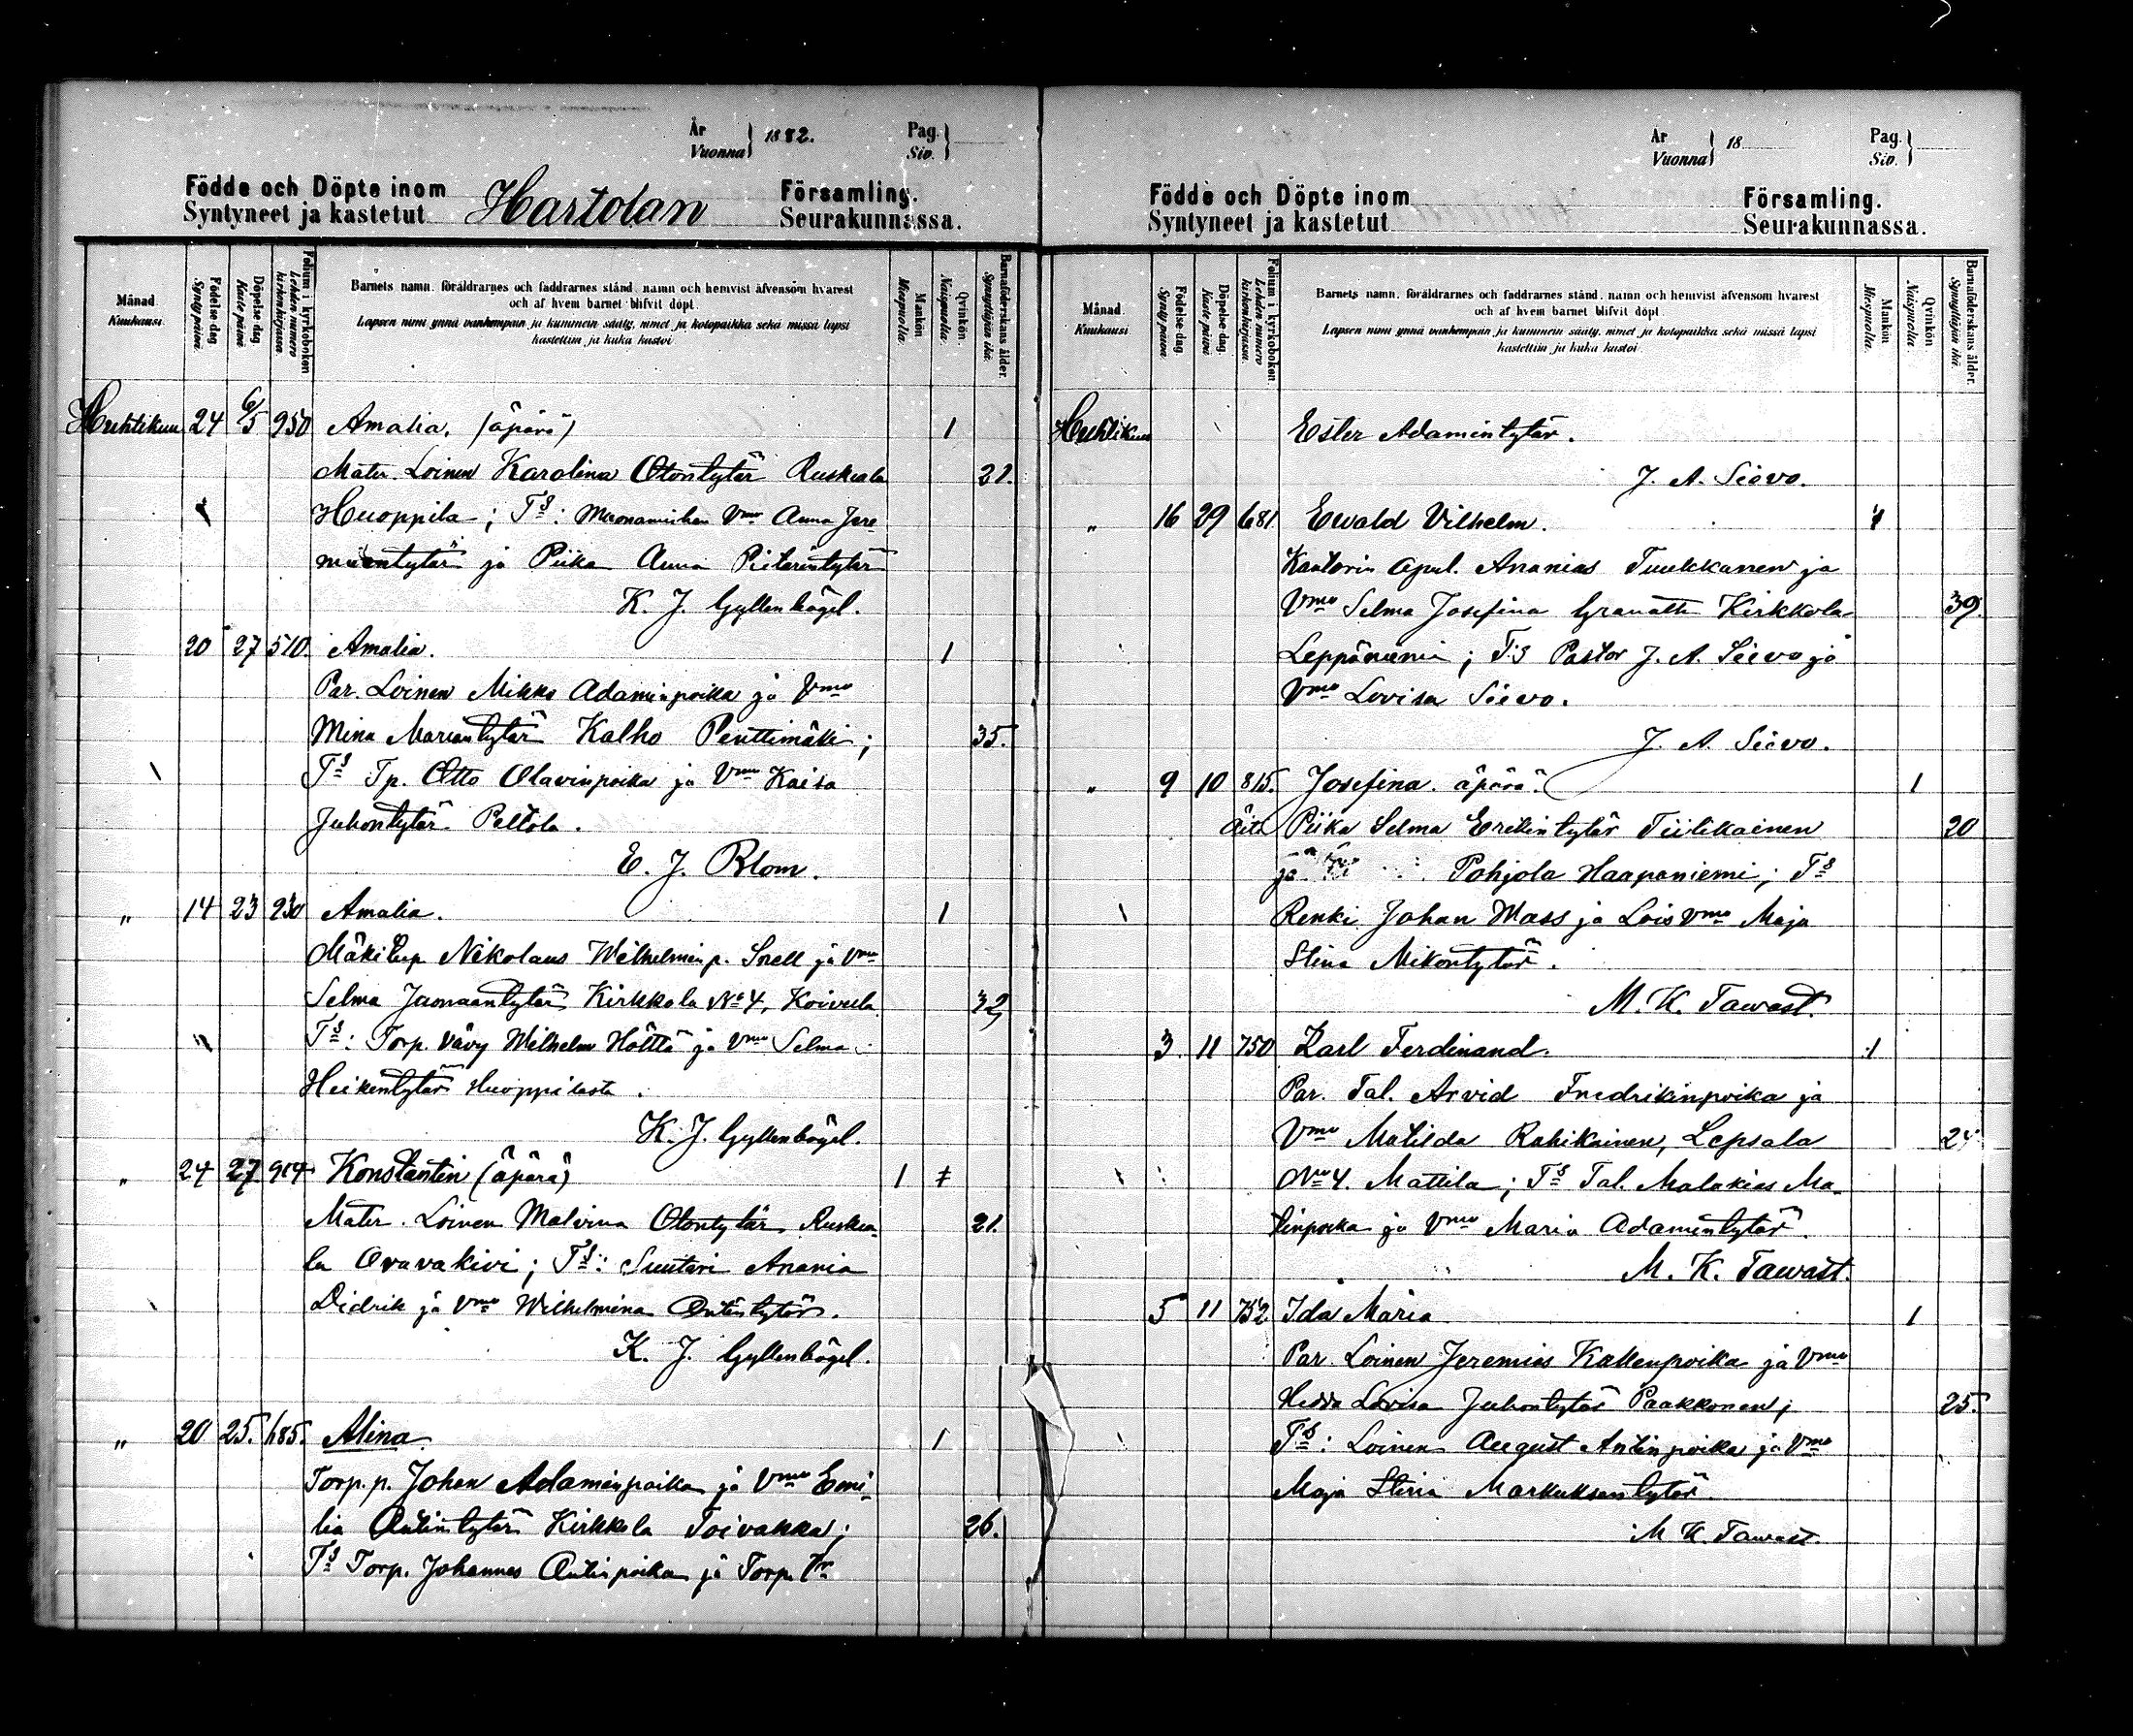 År
Vuonna } 1882.
Pag.
Siv. }
Födde och Döpte inom
Syntyneet ja kastetut
Hartolan
Församling.
Seurakunnassa.
Månad.
Kuukausi
Födelse dag.
Synty päivä
Döpelse dag
Kaste päivä
Folium i kyrkoboken
Lehden numero
kirkonkirjassa
Barnets namn, föräldrarnes och faddrarnes stånd, namn och hemvist äfvensom hvarest
och af hvem barnet blifvit döpt.
Lapsen nimi ynnä vanhempain ja kummein sääty, nimet ja kotopaikka sekä missä lapsi
kastettiin ja kuka kastoi
Mankön
Miespuolta.
Qvinkön.
Naispuolta.
Barnaföderskans ålder.
Synnyttäjän ikä.
Huhtikuu 24 6/5 950 Amalia. (äpärä) 1
Mater. Loinen Karolina Otontytär Ruskeala 21.
Huoppila; Ts: Muonamiehen Vmo Anna Jere-
miaantytär ja Piika Anna Pietarintytär
K. J. Gyllenbögel.
20 27 510. Amalia. 1
Par. Loinen Mikko Adaminpoika ja Vmo
Mina Mariantytär Kalho Penttimäki; 35.
Ts Tp. Otto Olavinpoika ja Vmo Kaisa
Juhontytär Peltola.
E. J. Blom.
" 14 23 230 Amalia. 1
Mäkitup Nikolaus Wilhelmin p. Snell ja Vmo
Selma Joonaantytär Kirkkola No 4, Koivula 32
Ts: Torp. vävy Wilhelm Höttä ja Vmo Selma
Heikintytär Huoppilasta.
K. J. Gyllenbögel.
" 24 27 914 Konstantin (äpärä) 1
Mater. Loinen Malvina Otontytär, Ruskea- 21.
la Oravakivi; Ts: Suutari Anania
Didrik ja Vmo Wilhelmina Antintytär.
K. J. Gyllenbögel.
" 20 25. 685. Alina. 1
Torp. p. Johan Adaminpoika ja Vmo Emi-
lia Antintytär Kirkkola Toivakka; 26.
Ts Torp. Johannes Antinpoika ja Torp. tr
År
Vuonna } 18
Pag.
Siv. }
Födde och Döpte inom
Syntyneet ja kastetut
Församling.
Seurakunnassa.
Månad.
Kuukausi
Födelse dag.
Synty päivä
Döpelse dag.
Kaste päivä
Folium i kyrkoboken.
Lehden numero
kirkonkirjassa.
Barnets namn, föräldrarnes och faddrarnes stånd, namn och hemvist äfvensom hvarest
och af hvem barnet blifvit döpt.
Lapsen nimi ynnä vanhempain ja kummein sääty, nimet ja kotopaikka sekä missä lapsi
kastettiin ja kuka kastoi
Mankön
Miespuolta.
Qvinkön
Naispuolta.
Barnaföderskans ålder.
Synnyttäjän ikä.
Huhtikuu Ester Adamintytär.
J. A. Sievo.
" 16 29 681 Ewald Vilhelm. 1
Kanttorin apul. Ananias Tuukkanen ja
Vmo Selma Josefina Granath Kirkkola 39.
Leppäniemi; T:s Pastor J. A. Sievo ja
Vmo Lovisa Sievo.
J. A. Sievo.
" 9 10 815. Josefina. äpärä. 1
Äiti Piika Selma Erikintytär Tiilikainen 20
Pohjola Haapaniemi; Ts
Renki Johan Mass ja Lois Vmo Maja
Stina Mikontytär.
M. K. Tawast.
3. 11 750 Karl Ferdinand. 1
Par. Tal. Arvid Fredrikinpoika ja
Vmo Matilda Rahikainen, Lepsala 24
No 4. Mattila; Ts Tal. Malakias Ma-
tinpoika ja Vmo Maria Adamintytär.
M. K. Tawast.
5 11 752 Ida Maria 1
Par. Loinen Jeremias Kallenpoika ja Vmo
Hedda Lovisa Juhontytär Paakkonen; 25.
Ts: Loinen August Antinpoika ja Vmo
Maja Stina Markuksentytär.
M K. Tawast.